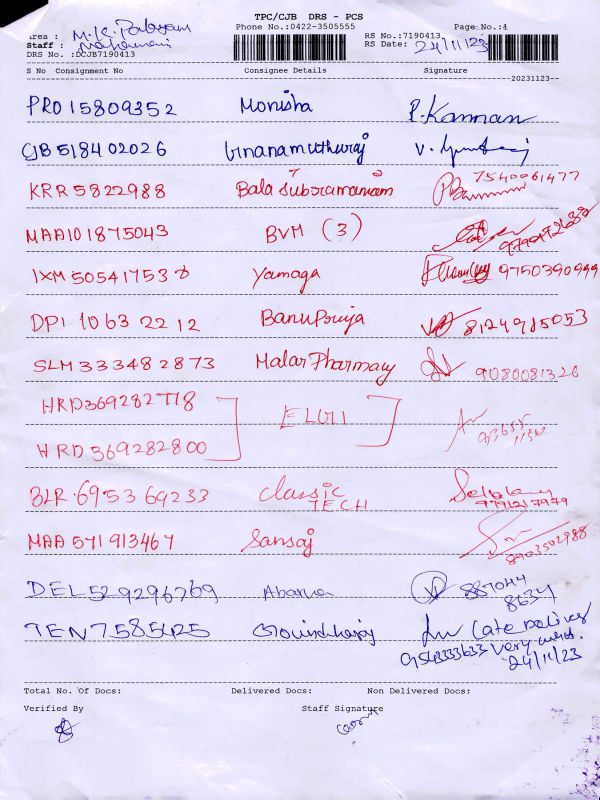 TPC/CJB DRS - PCS
Phone No.:0422-3505555 Page No.:1
Area : M.K. RS No.:7190413
Staff : RS Date: 24/11/23
DRS No. :DCJB7190413
S No Consignment No Consignee Details Signature
20231123
PRO 15809352 Monisha P. Kannan
CJB 518402026 Gnanamuthuraj V.
KRR 5822988 Bala Subramaniam 7540061477
MAA101875043 BVM (3)
IXM 505417538 Yamaga 9750390999
DPI 1063 2212 Banupriya 8124985053
SLM 333482873 Malar Pharmacy 9080081326
HRD369282718
HRD369282800
BLR 695369233 Classic TECH 9791217979
MAA 571913467 Sansaj 8903502988
DEL 529296769 887044
8634
TEN 7585425 Govindharaj Late Delivery
9543333633 Very
24/11/23
Total No. Of Docs: Delivered Docs: Non Delivered Docs:
Verified By Staff Signature